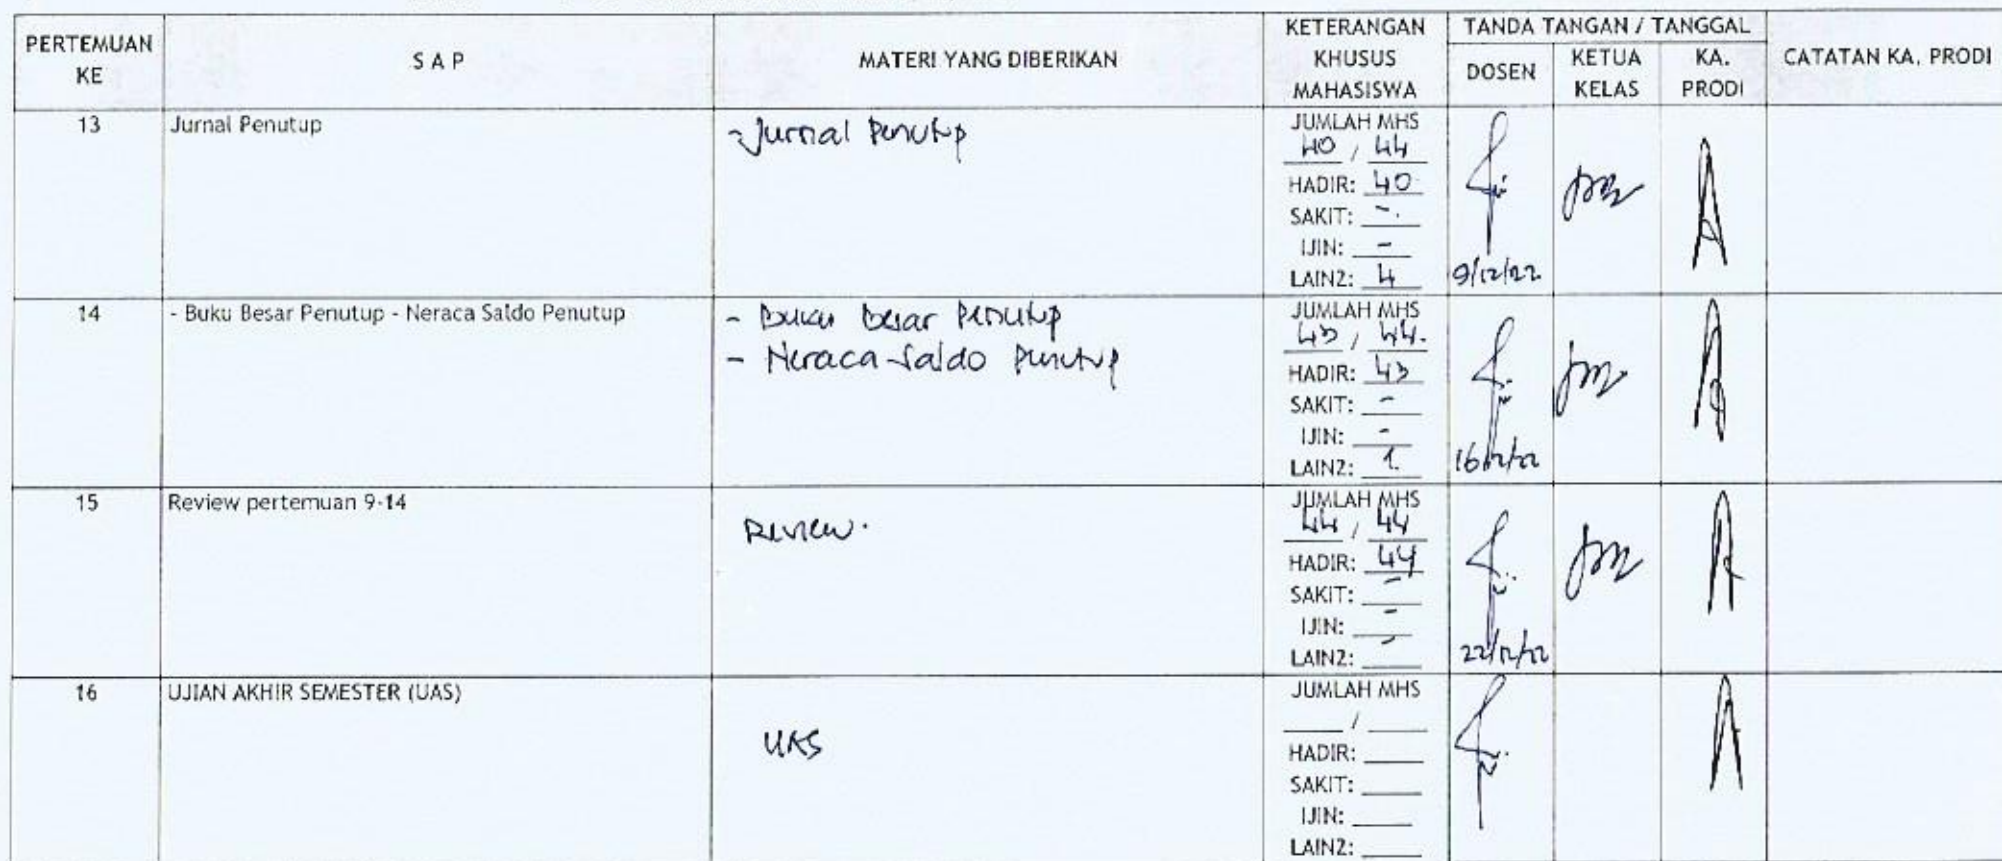 PERTEMUAN KE
S A P
MATERI YANG DIBERIKAN
KETERANGAN KHUSUS MAHASISWA
TANDA TANGAN / TANGGAL
DOSEN
KETUA KELAS
KA. PRODI
CATATAN KA. PRODI
13
Jurnal Penutup
- Jurnal Penutup
JUMLAH MHS
40 / 44
HADIR: 40
SAKIT: -
IJIN: -
LAIN2: 4
9/12/22
14
- Buku Besar Penutup - Neraca Saldo Penutup
- Buku Besar Penutup
- Neraca Saldo Penutup
JUMLAH MHS
43 / 44
HADIR: 43
SAKIT: -
IJIN: -
LAIN2: 1
16/12/22
15
Review pertemuan 9-14
Review.
JUMLAH MHS
44 / 44
HADIR: 44
SAKIT: -
IJIN: -
LAIN2: -
22/12/22
16
UJIAN AKHIR SEMESTER (UAS)
UAS
JUMLAH MHS
/
HADIR:
SAKIT:
IJIN:
LAIN2: